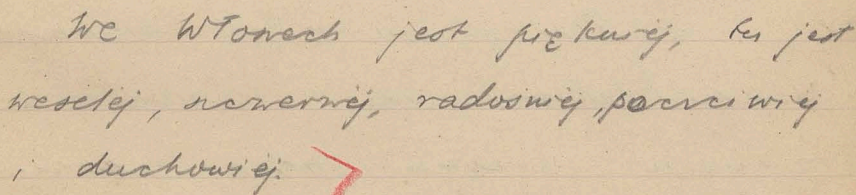 We Włoszech jest piękniej, tu jest
weselej, szczerzej, radośniej, poczciwiej
i duchowiej.